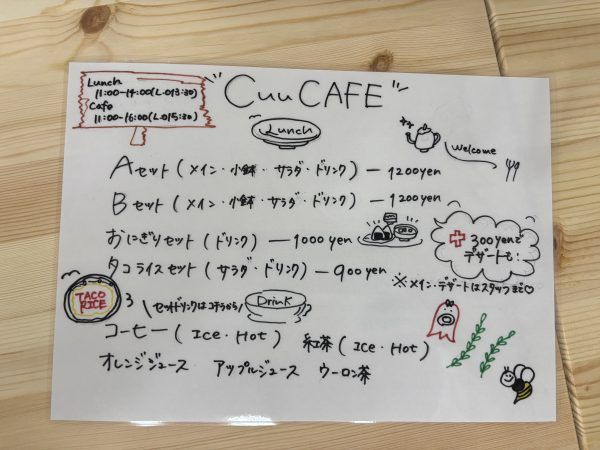 Lunch
11:00-14:00(L.O13:30)
Cafe
11:00-16:00(L.O15:30)
Cuu CAFE
Lunch
Welcome
Aセット(メイン・小鉢・サラダ・ドリンク)ー1200yen
Bセット(メイン・小鉢・サラダ・ドリンク)ー1200yen
おにぎりセット(ドリンク)ー1000yen
300yenで
デザートも!
タコライスセット(サラダ・ドリンク)ー900yen
※メイン・デザートはスタッフまで♡
TACO
RICE
\セットドリンクはコチラから/
Drink
コーヒー(Ice・Hot)
紅茶(Ice・Hot)
オレンジジュース アップルジュース ウーロン茶